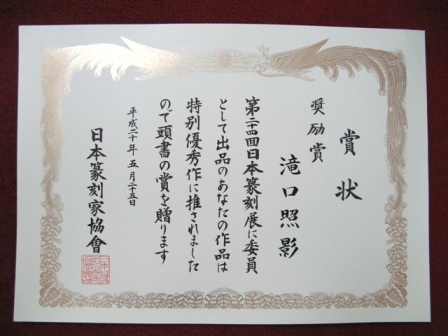 賞状
奨励賞
滝口照影
第二十四回日本篆刻展に委員
として出品のあなたの作品は
特別優秀作に推されました
ので頭書の賞を贈ります
平成二十年五月二十五日
日本篆刻家協會